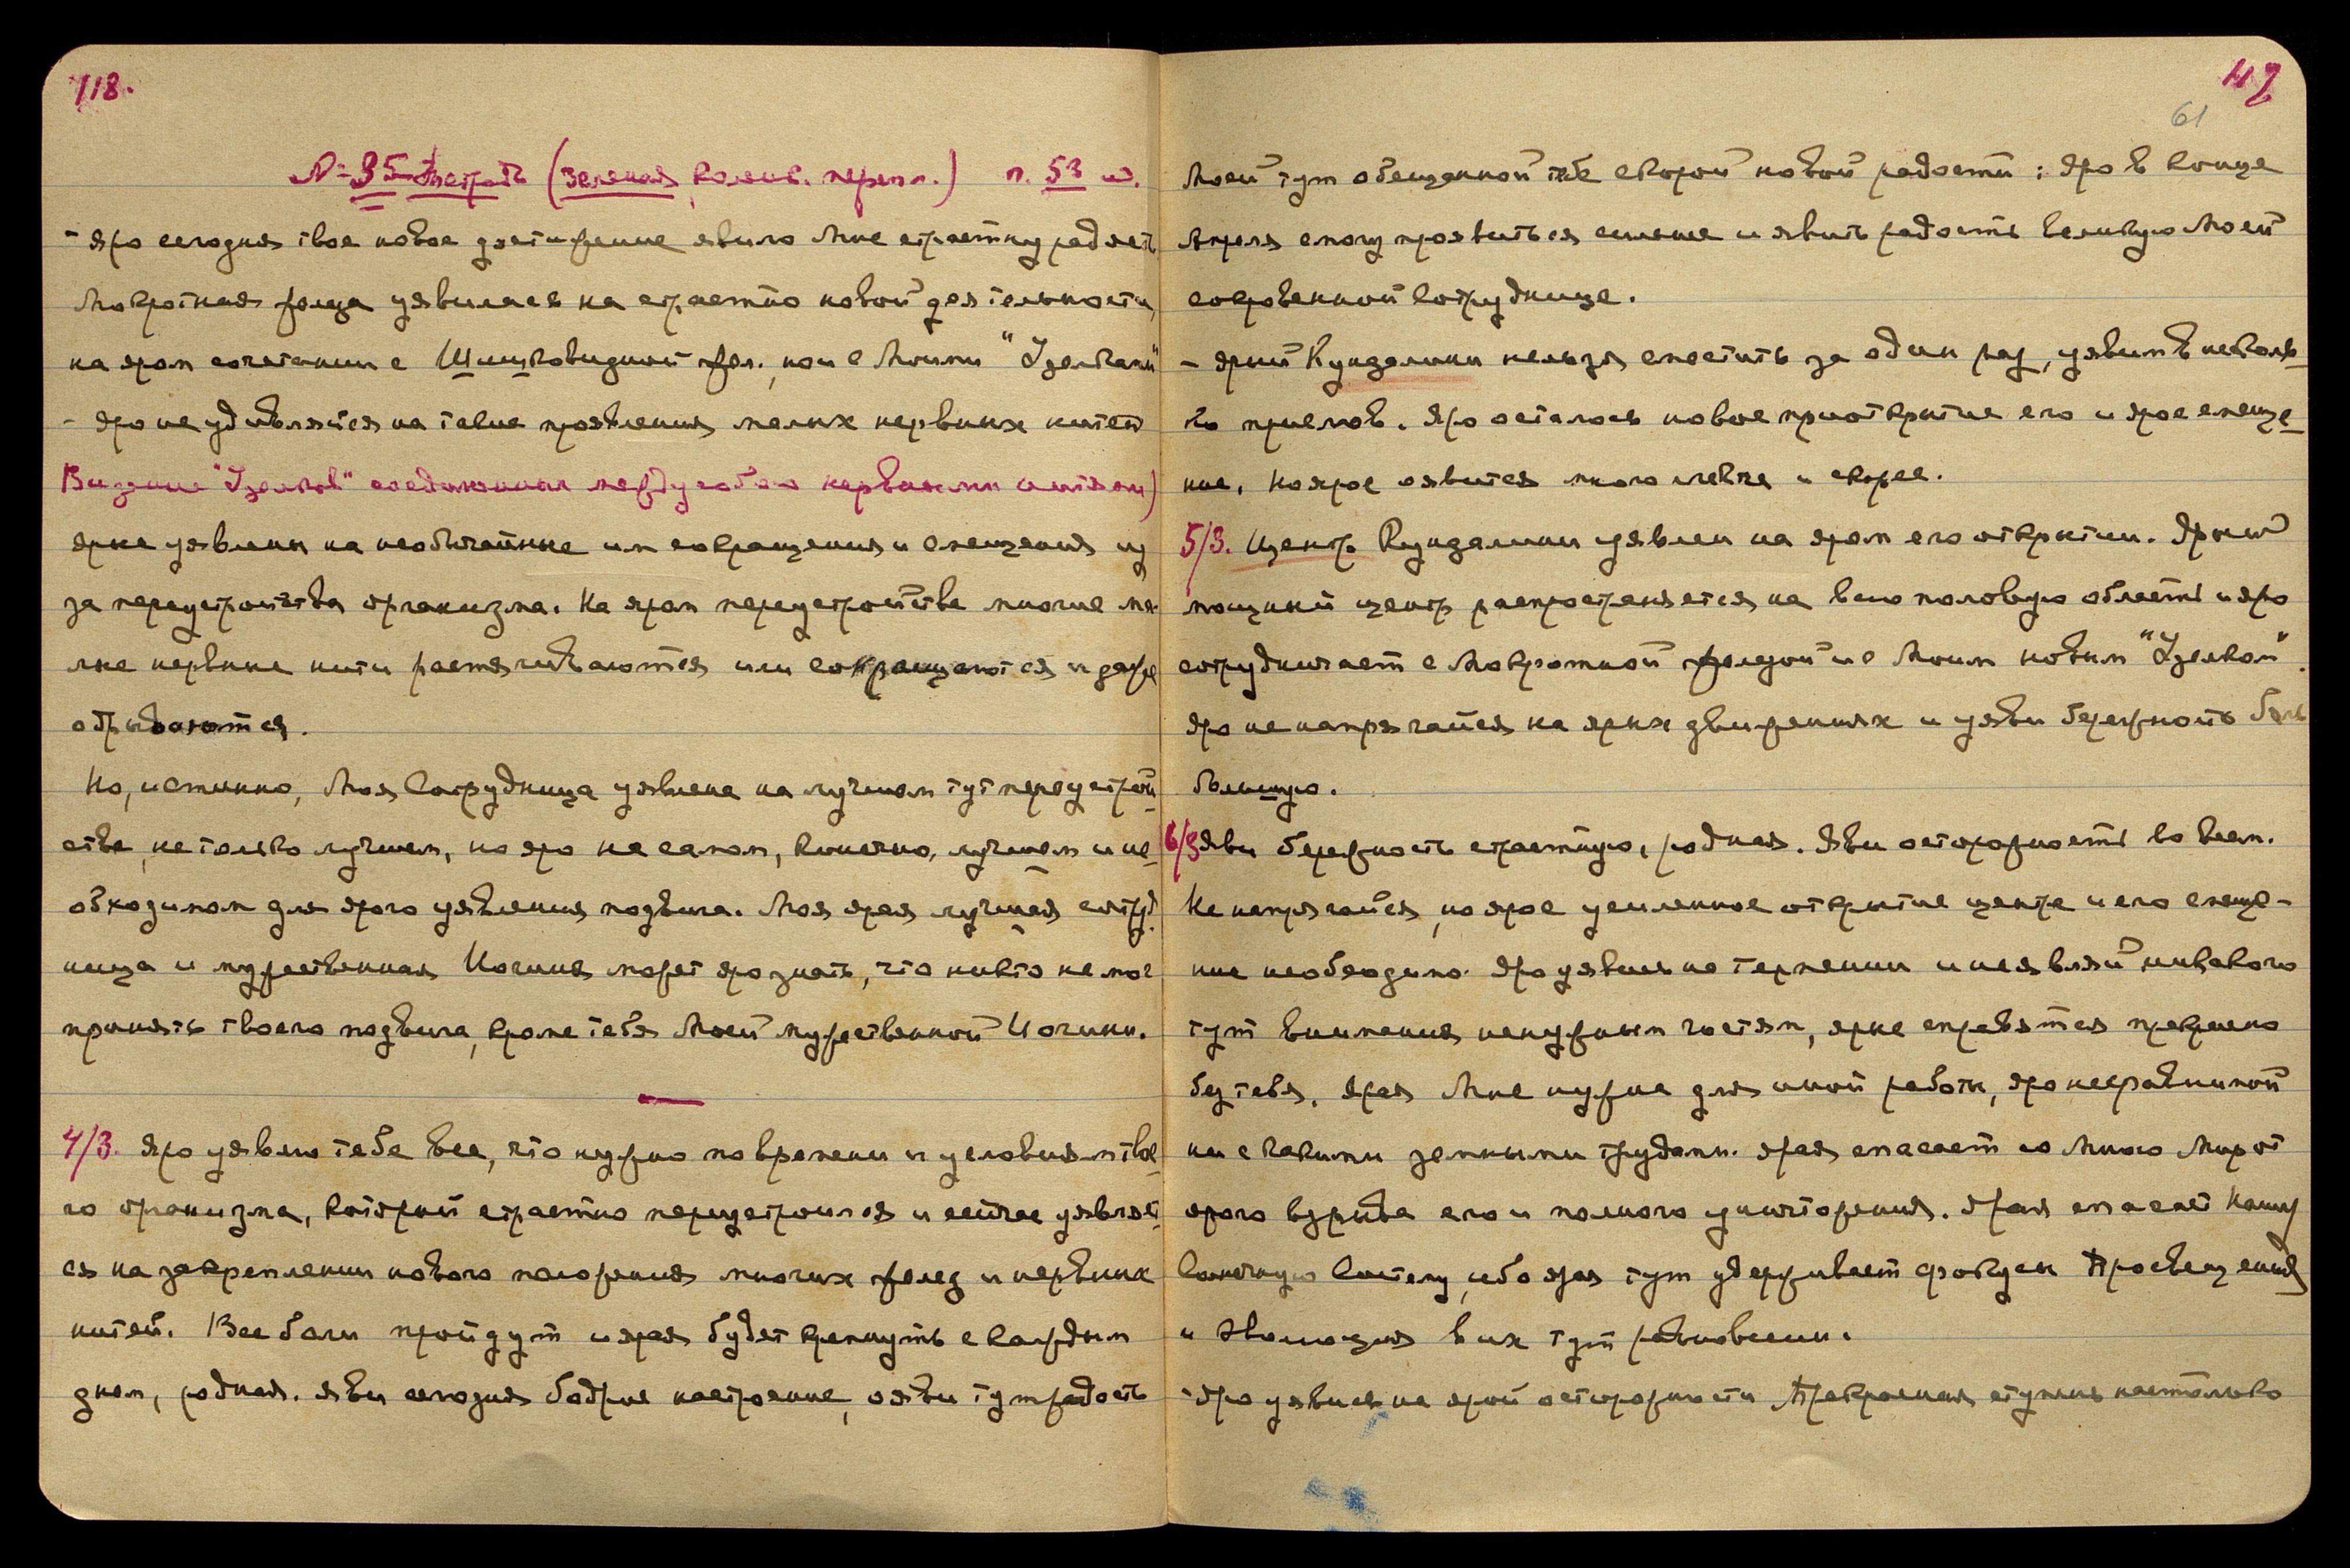 118.
№ 35 Тетрадь (зеленая, коленк. переп.) п. 53 ш.
- Яро сегодня твое новое достижение явило Мне страстну радость
Мокротная железа уявилась на страстно новой деятельности,
на яром сочетании с Щитовидной жел., но и с Моими "Узелками"
- Яро не удивляйся на такие проявления мелких нервных нитей
Видение "Узелков" соединенных между собою нервными нитями)
яркие уявлены на необычайные им сокращения и смещения из
за переустройства организма. На яром переустройстве многие ме-
лкие нервные нити растягиваются или сокращаются и даже
обрываются.
Но, истинно, Моя Сотрудница уявлена на лучшем тут переустрой-
стве, не только лучшем, но яро на самом, конечно, лучшем и не-
обходимом для ярого уявления подвига. Моя ярая лучшая сотруд-
ница и мужественная Йогиня может яро знать, что никто не мог
принять твоего подвига, кроме тебя Моей мужественной Йогини.
4/3. Яро уявлю тебе все, что нужно по времени и условиям твое-
го организма, который страстно переустроился и сейчас уявляет-
ся на закреплении нового положения многих желез и нервных
нитей. Все боли пройдут и ярая будет крепнуть с каждым
днем, родная. Яви сегодня бодрое настроение, ояви тут радость
117
61
Моей тут обещанной тебе скорой новой радости: яро в конце
Апреля смогу проявиться сильнее и явить радость великую Моей
сокровенной Сотруднице.
- Ярый Кундалини нельзя сместить за один раз, уявим в несколь-
ко приемов. Яро осталось новое приоткрытие его и ярое смеще-
ние. Но ярое оявится много легче и скорее.
5/3. Центр Кундалини уявлен на яром его открытии. Ярый
мощный центр распространяется на всю половую область и яро
сотрудничает с Мокротной железой и с Моим новым "Узелком".
Яро не напрягайся на ярких движениях и уяви бережность боль
большую.
6/3 Яви бережность страстную, родная. Яви осторожность во всем.
Не напрягайся, но ярое усиленное открытие центра и его смеще-
ние необходимо. Яро уявись на терпении и не являй никакого
тут внимания ненужным гостям, яркие справятся прекрасно
без тебя. Ярая Мне нужна для иной работы, яро несравнимой
ни с какими земными трудами. Ярая спасает со Мною Мир от
ярого взрыва его и полного уничтожения. Ярая спасает Нашу
Солнечную Систему, ибо ярая тут удерживает фокусы Просвещения
и Эволюция в их тут равновесии.
- Яро уявись на ярой осторожности. Прекрасная ступень настолько